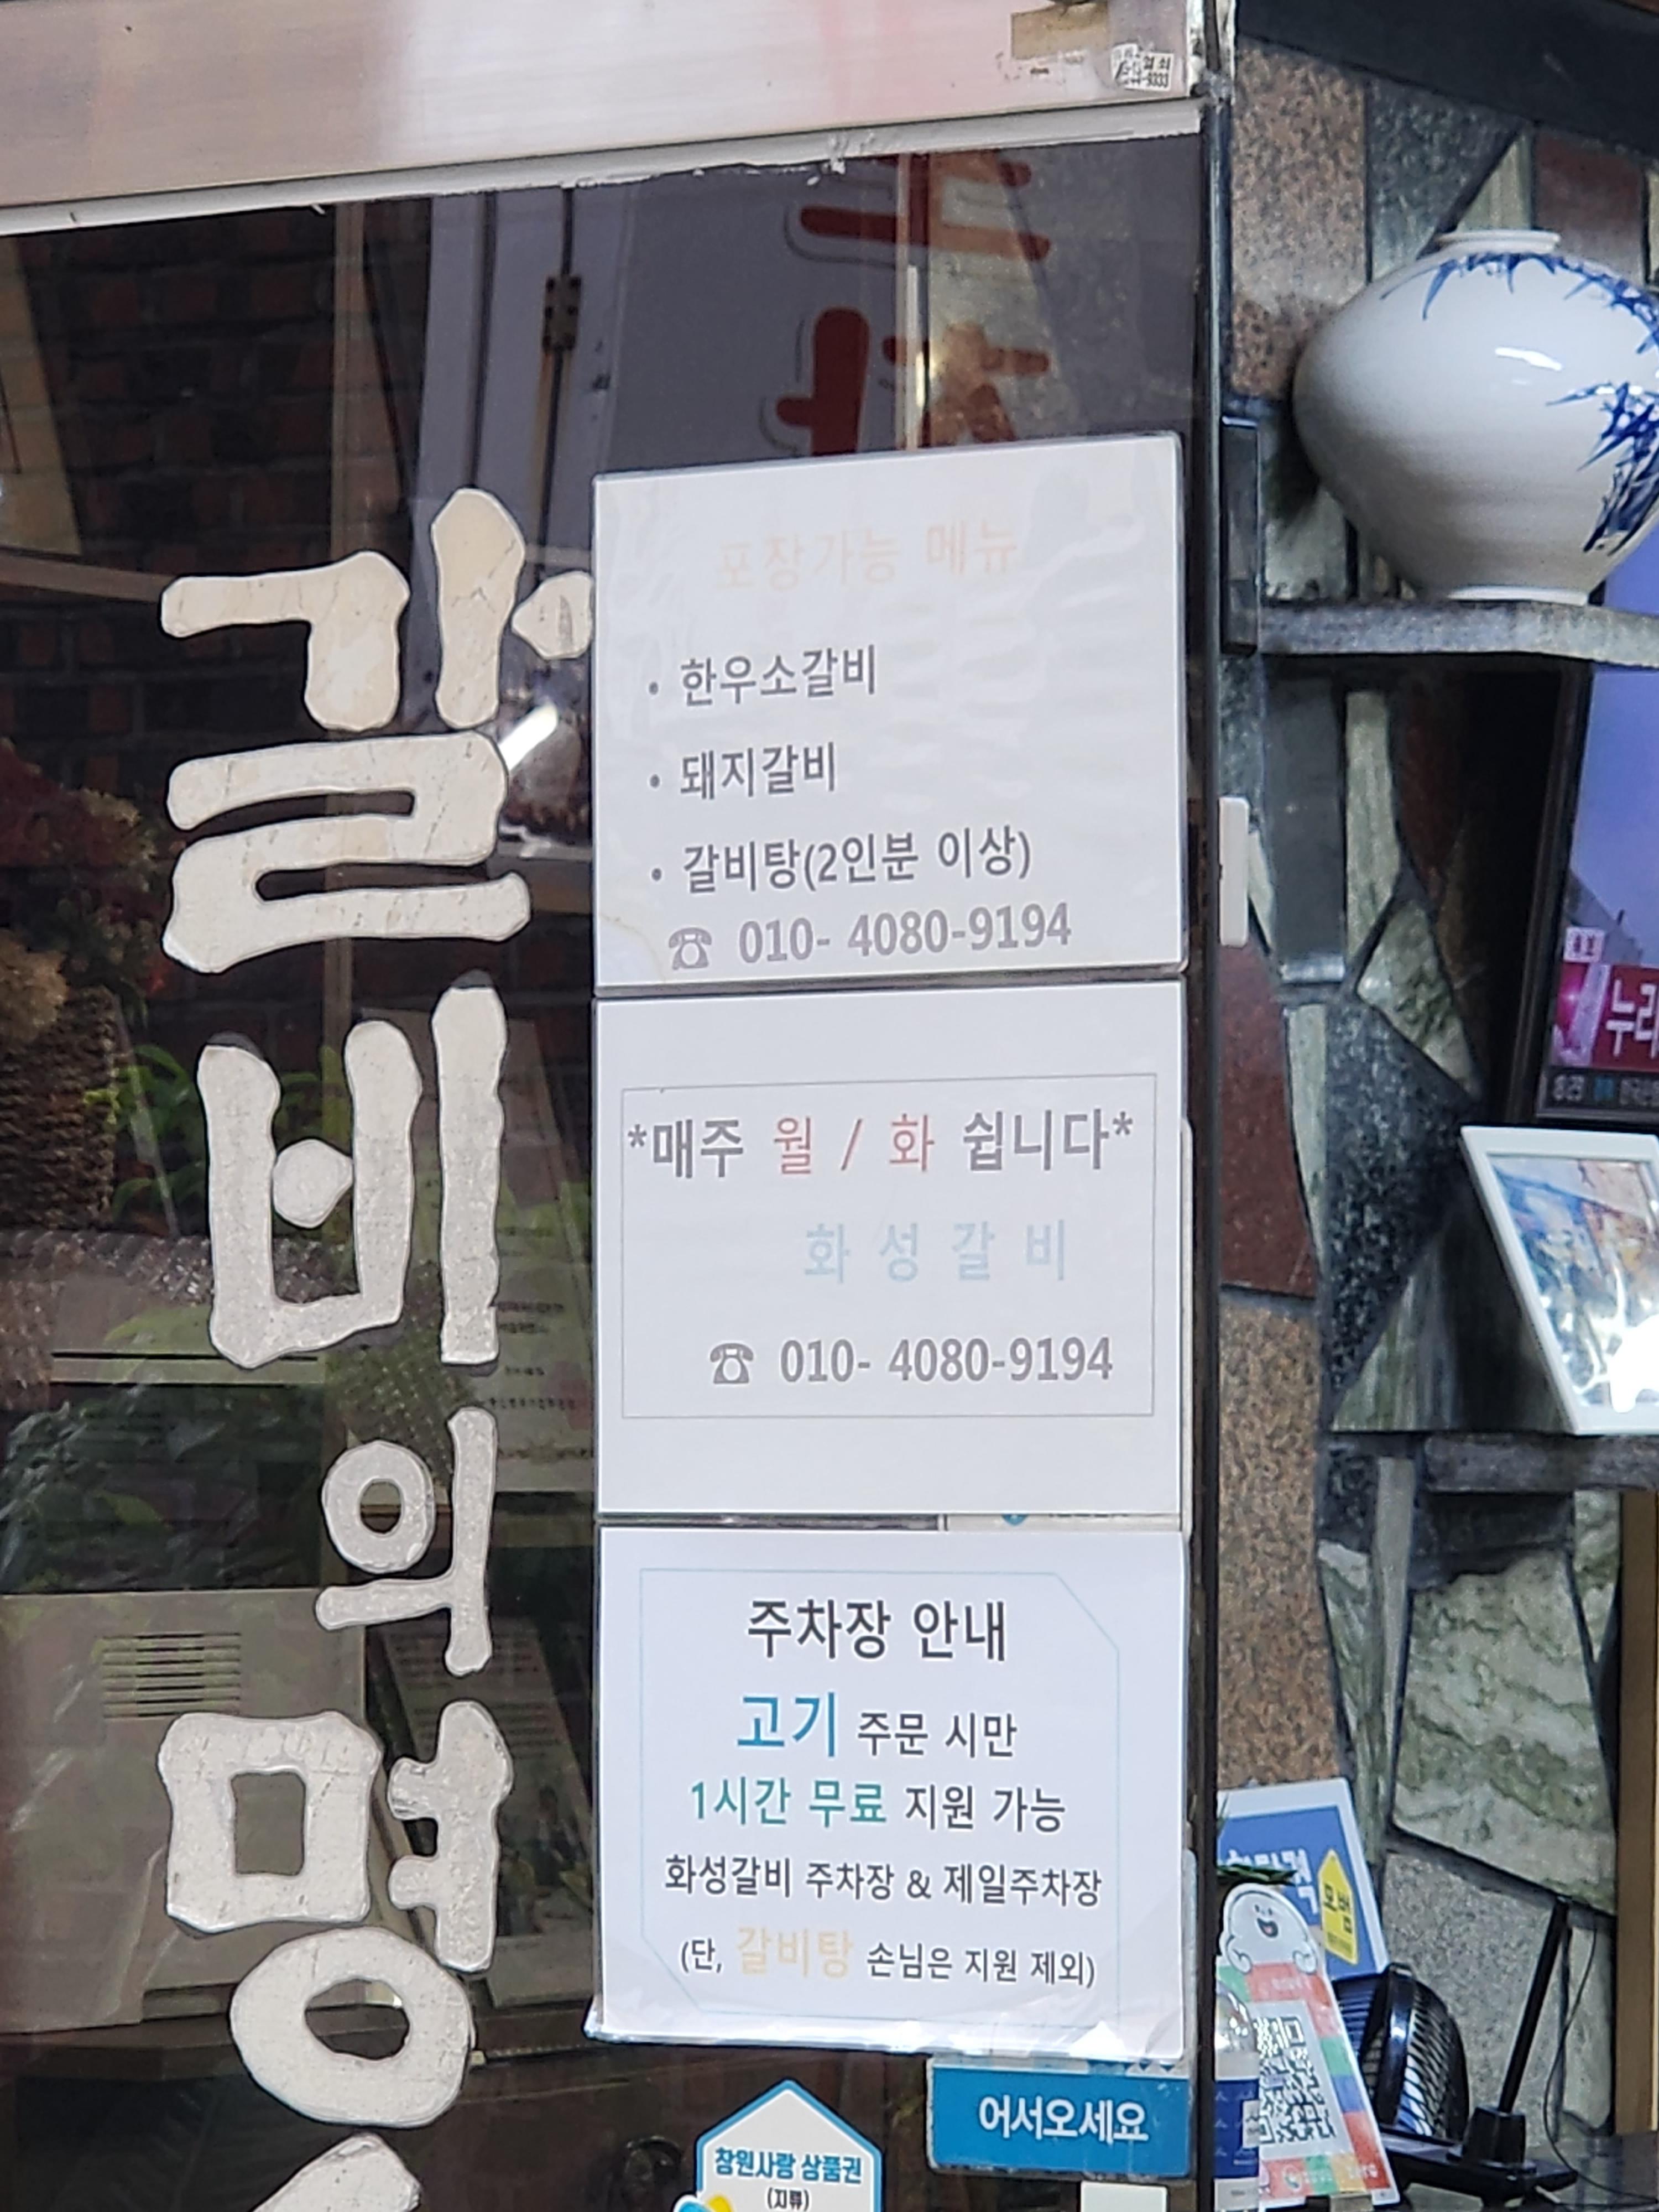 갈비의명
포장가능 메뉴
• 한우소갈비
• 돼지갈비
• 갈비탕(2인분 이상)
☎ 010- 4080-9194
*매주 월 / 화 쉽니다*
화 성 갈 비
☎ 010- 4080-9194
주차장 안내
고기 주문 시만
1시간 무료 지원 가능
화성갈비 주차장 & 제일주차장
(단, 갈비탕 손님은 지원 제외)
어서오세요
창원사랑 상품권
(지류)
누리